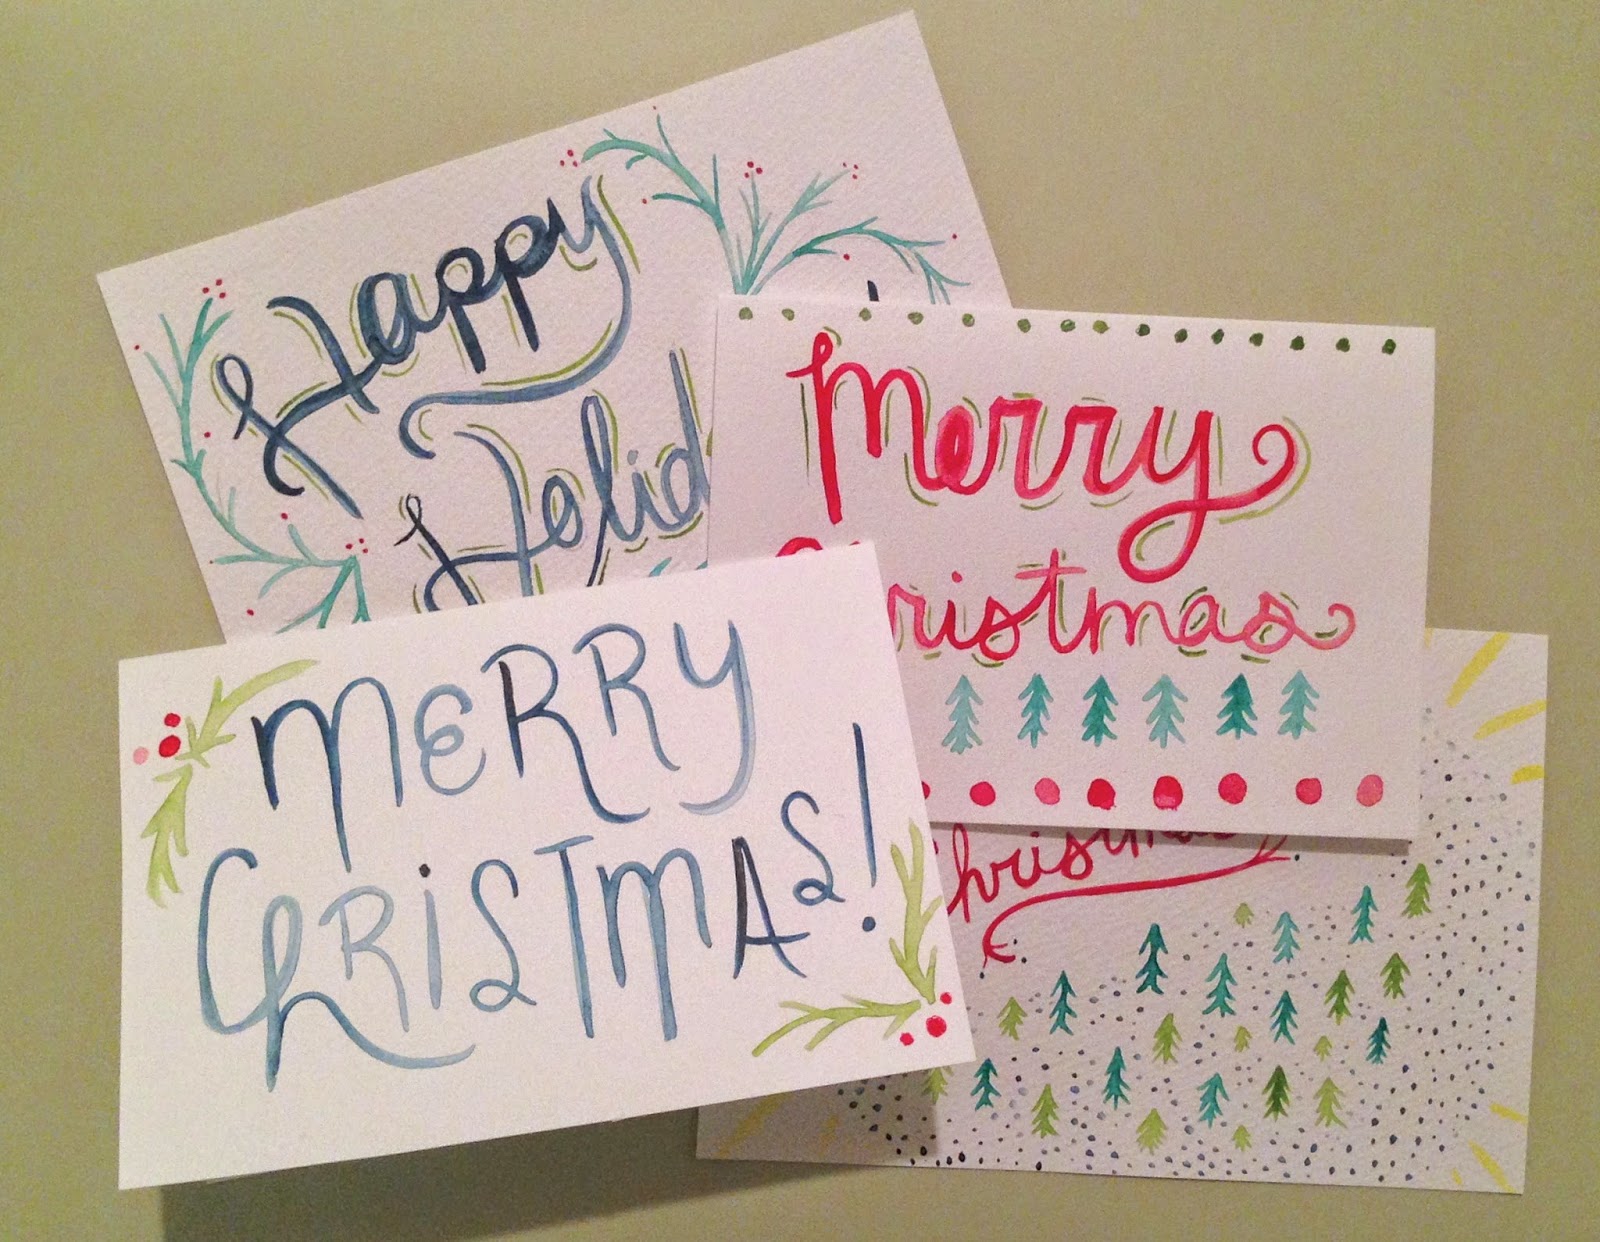 Happy
Holid
Merry
Christmas
MERRY
CHRiSTMAS!
Christmas